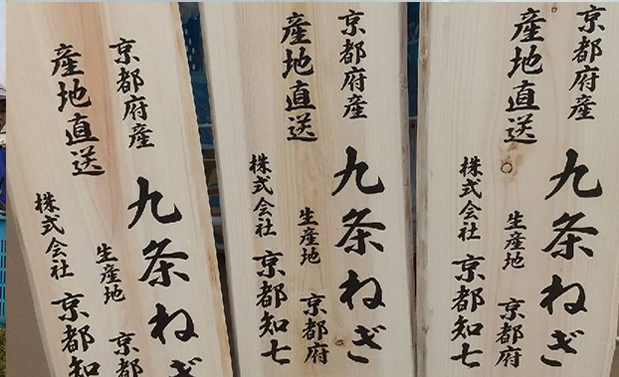 京都府産
九条ねぎ
産地直送
生産地 京都
株式会社 京都知
京都府産
九条ねぎ
産地直送
生産地 京都府
株式会社 京都知七
京都府産
九条ねぎ
産地直送
生産地 京都府
株式会社 京都知七